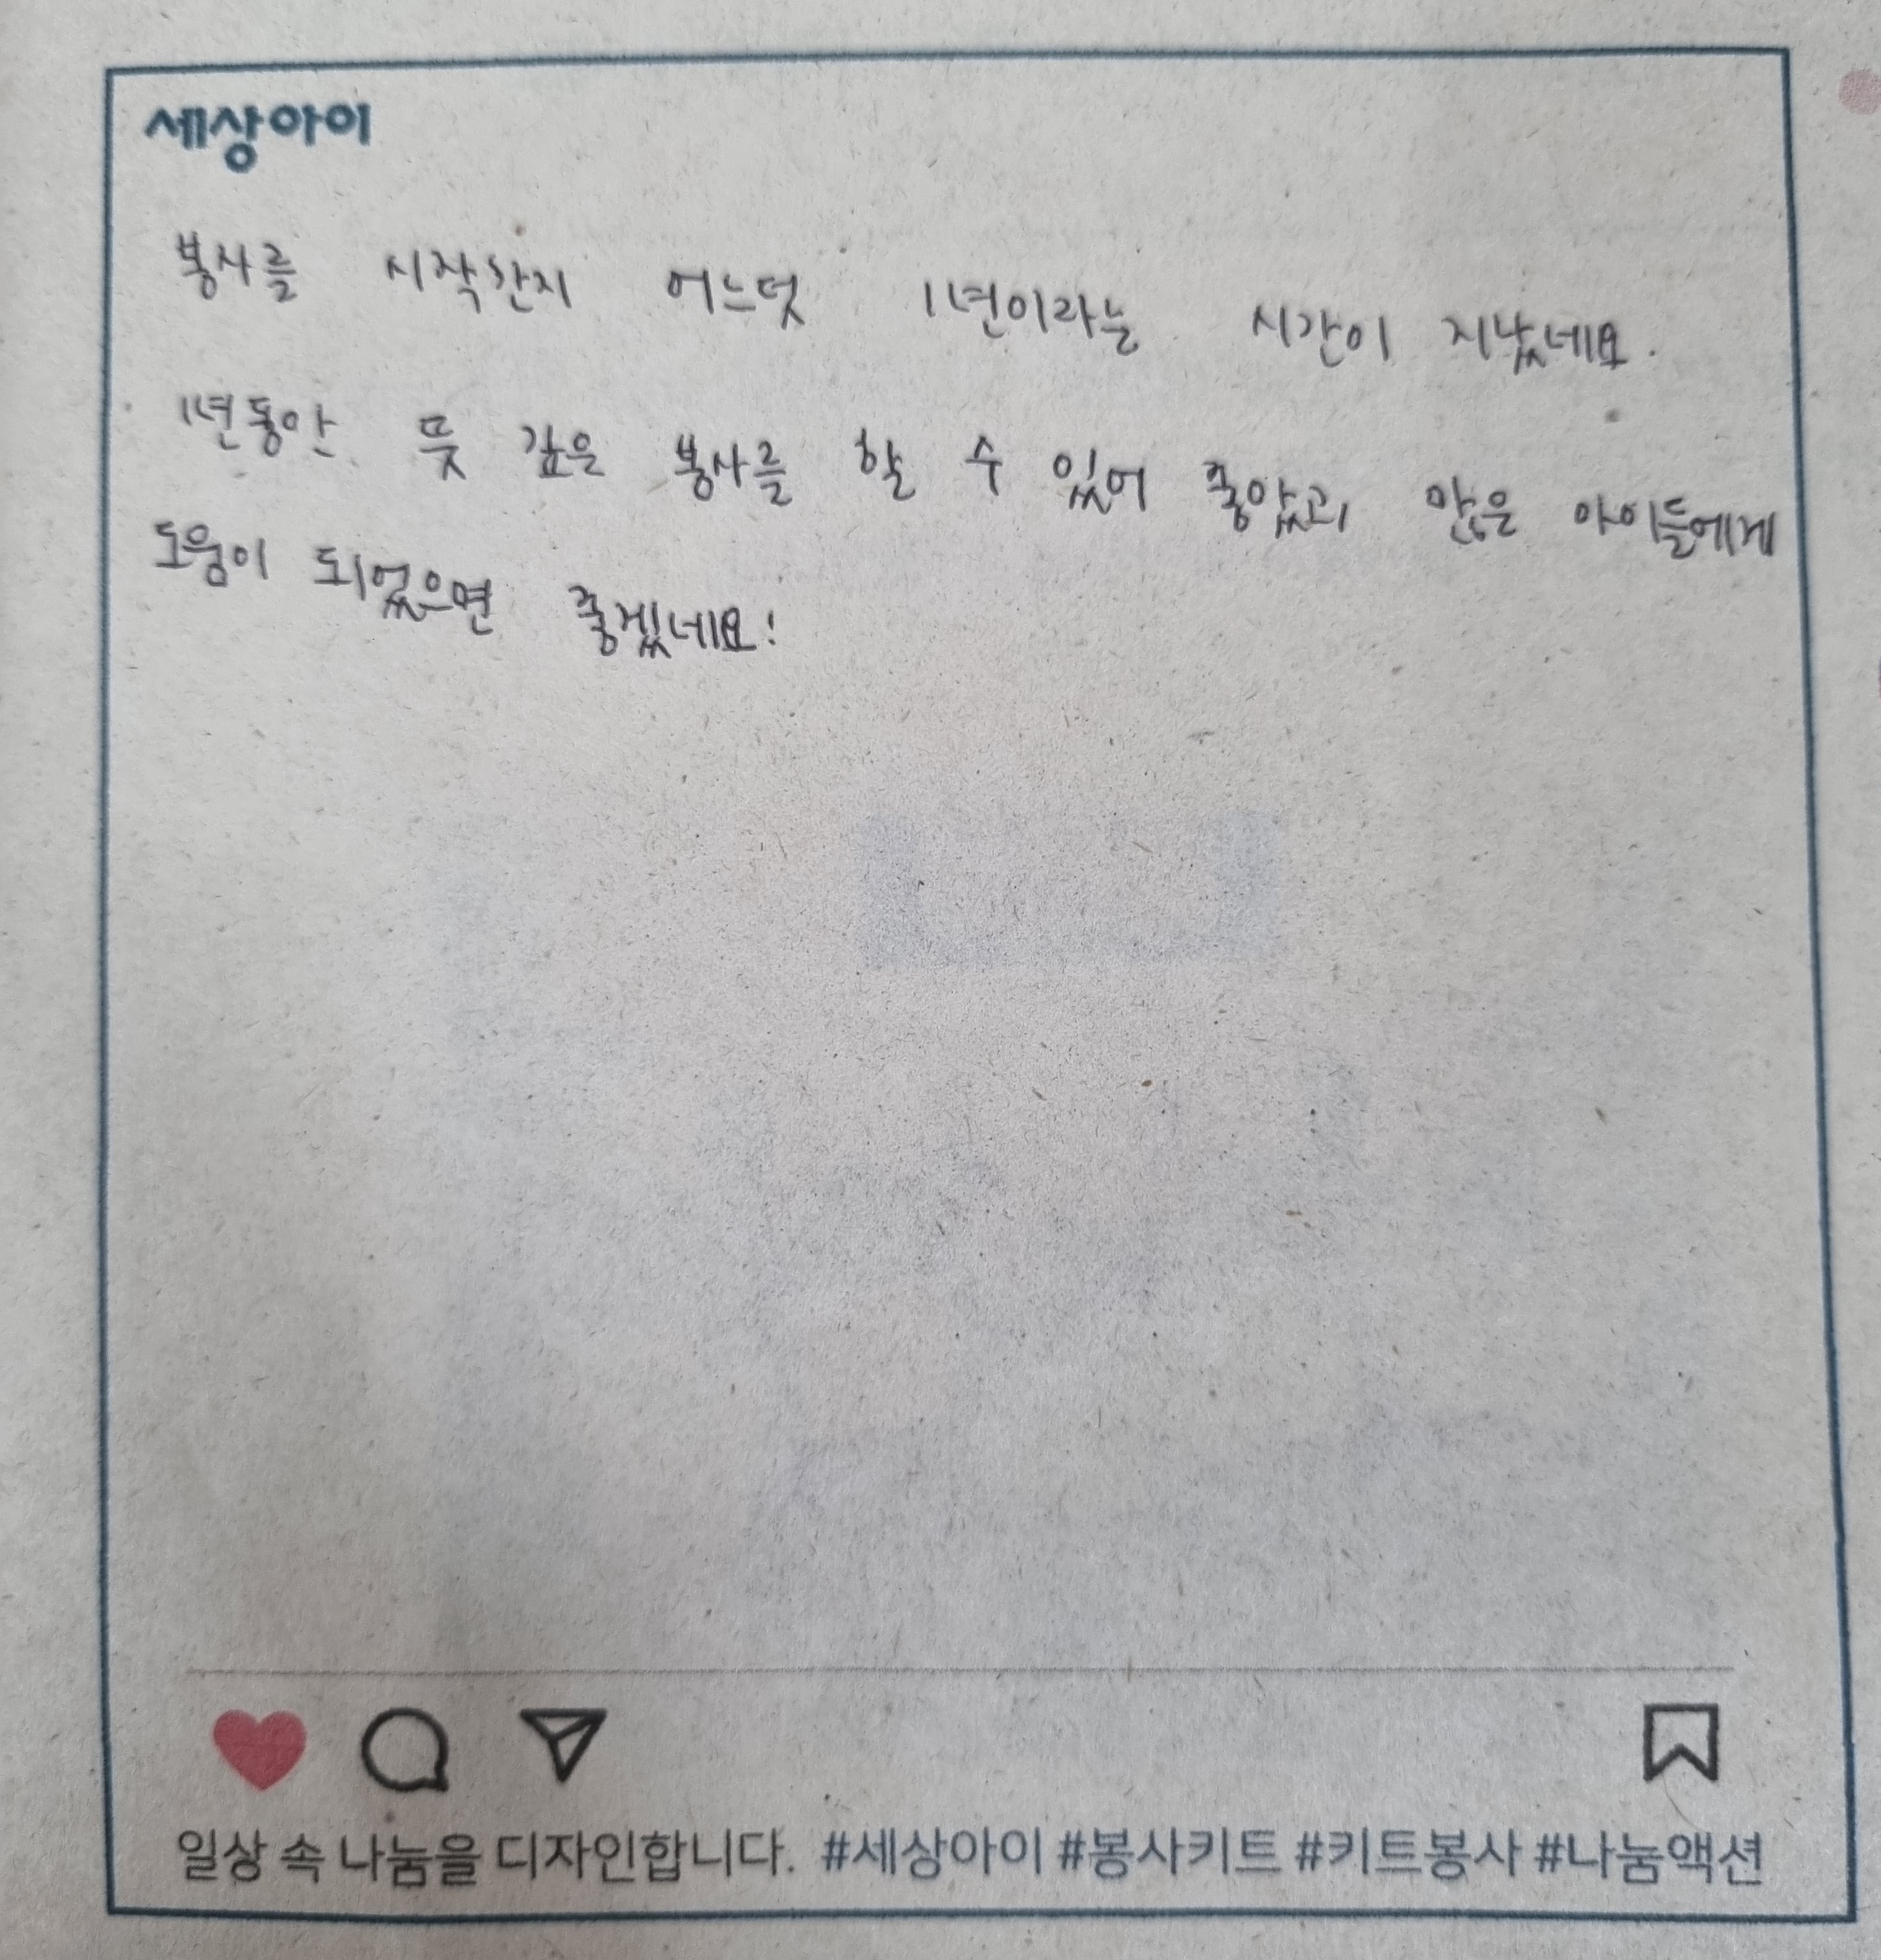 세상아이
봉사를 시작한지 어느덧 1년이라는 시간이 지났네요.
1년동안 뜻 깊은 봉사를 할 수 있어 좋았고 많은 아이들에게
도움이 되었으면 좋겠네요!
일상 속 나눔을 디자인합니다. #세상아이 #봉사키트 #키트봉사 #나눔액션